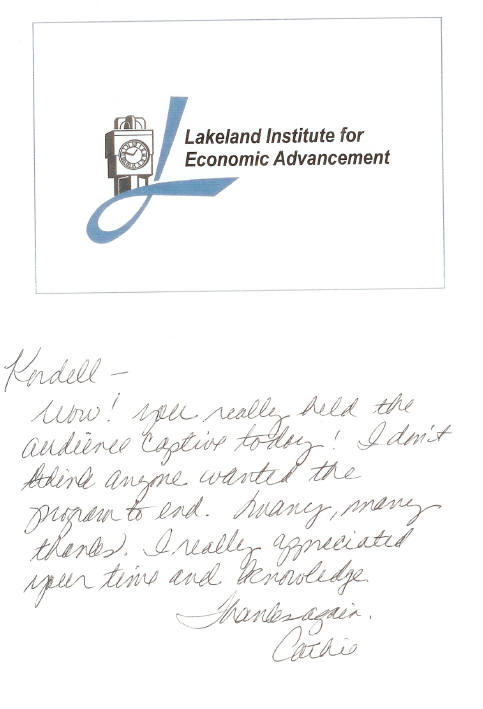 Lakeland Institute for
Economic Advancement
Kordell —
Wow! you really held the
audience captive today! I don't
think anyone wanted the
program to end. Many, many
thanks. I really appreciated
your time and knowledge.
Thanks again.
Cathie